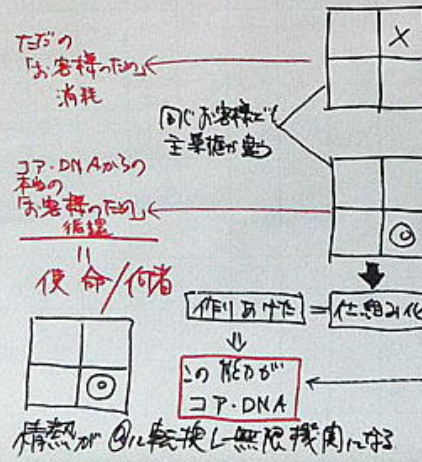 ただの
「お客様のため」
消耗
×
同じお客様でも
主業態が違う
コア・DNAからの
本当の
「お客様のため」
循環
||
使命/何者
◎
作りあげた = 仕組み化
この能力が
コア・DNA
◎
情熱が◎に転換し無限機関になる